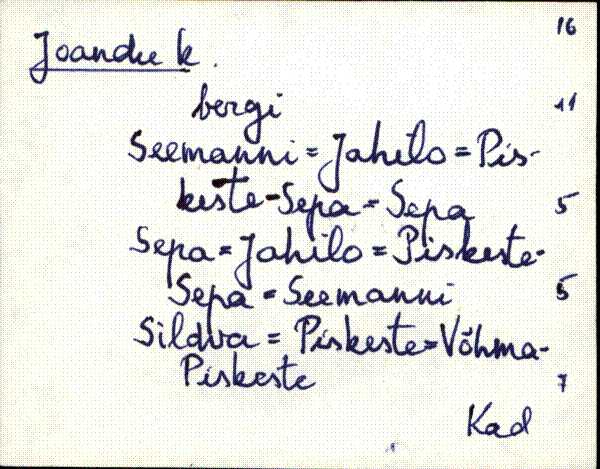 16
Joandu k.
bergi 11
Seemanni = Jahilo = Pis-
keste-Sepa = Sepa 5
Sepa = Jahilo = Piskeste-
Sepa = Seemanni 5
Sildva = Piskeste = Võhma-
Piskeste 7
Kad